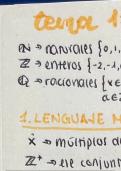 tema 1
ℕ → naturales {0,1,
ℤ → enteros {-2,-1,
ℚ → racionales {x∈
a∈ℤ
1. LENGUAJE
ẋ → múltiplos d
ℤ⁺ → el conjunt